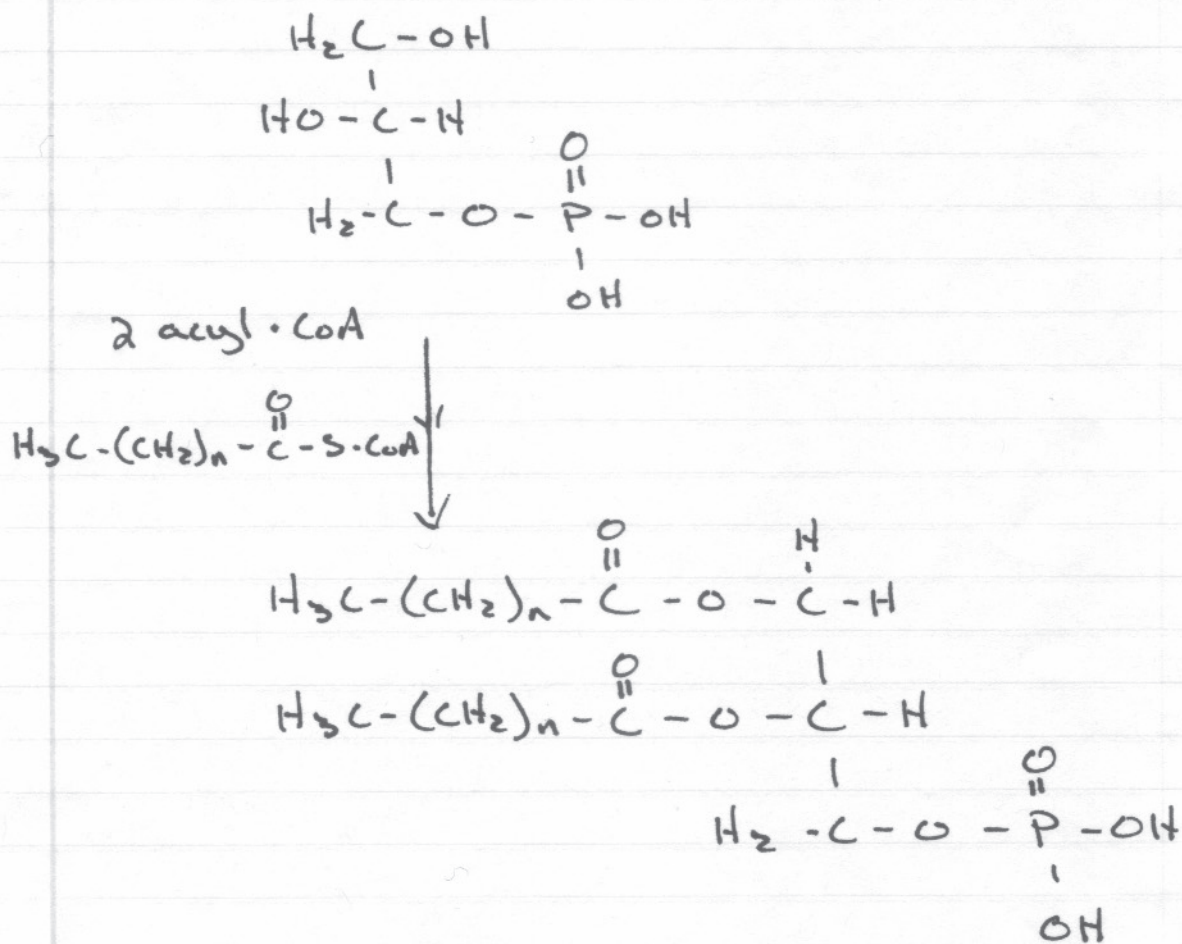 H₂C - OH
HO - C - H
O
H₂ - C - O - P - OH
OH
2 acyl · CoA
O
H₃C - (CH₂)ₙ - C - S · CoA
O H
H₃C - (CH₂)ₙ - C - O - C - H
O
H₃C - (CH₂)ₙ - C - O - C - H
O
H₂ - C - O - P - OH
OH